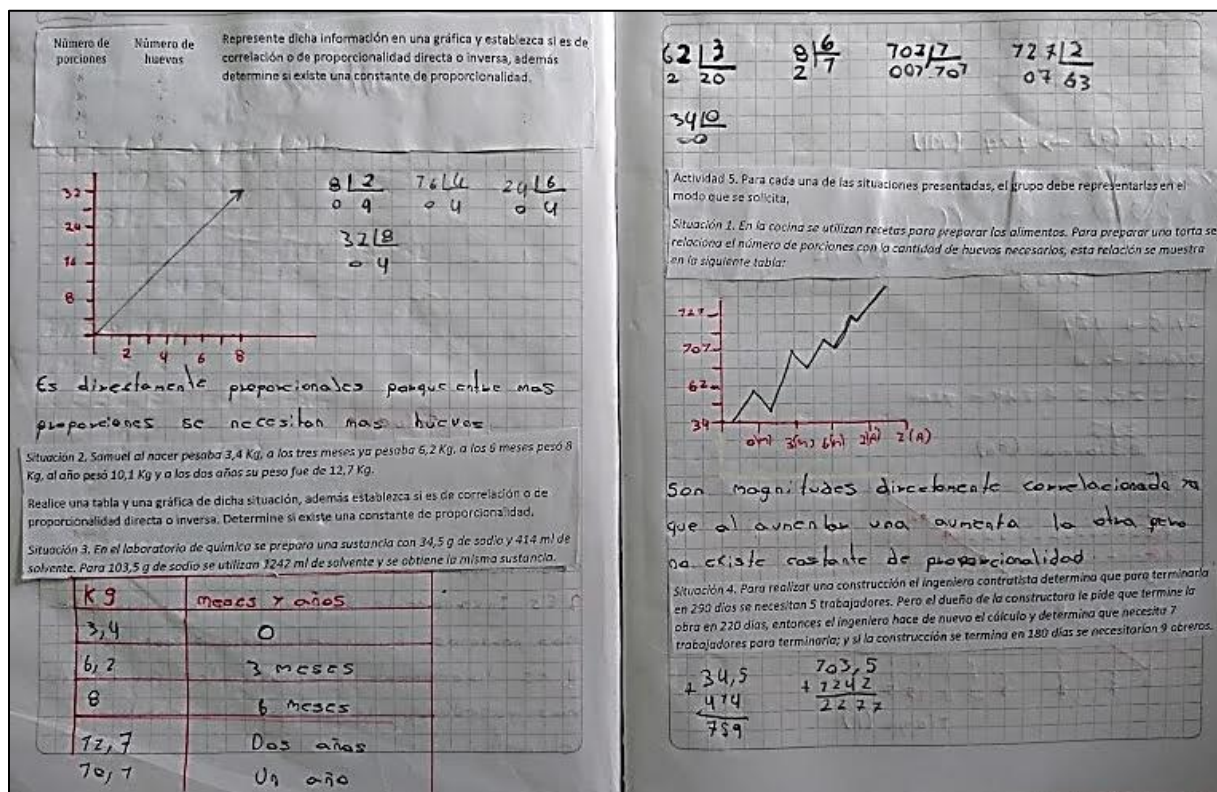 Número de porciones
Número de huevos
Represente dicha información en una gráfica y establezca si es de
correlación o de proporcionalidad directa o inversa, además
determine si existe una constante de proporcionalidad.
32
24
16
8
2 4 6 8
8 2
0 4
16 4
0 4
24 6
0 4
32 8
0 4
Es directamente proporcionales porque entre mas
proporciones se necesitan mas huevos
Situación 2. Samuel al nacer pesaba 3,4 Kg, a los tres meses ya pesaba 6,2 Kg, a los 6 meses pesó 8
Kg, al año pesó 10,1 Kg y a los dos años su peso fue de 12,7 Kg.
Realice una tabla y una gráfica de dicha situación, además establezca si es de correlación o de
proporcionalidad directa o inversa. Determine si existe una constante de proporcionalidad.
Situación 3. En el laboratorio de química se prepara una sustancia con 34,5 g de sodio y 414 ml de
solvente. Para 103,5 g de sodio se utilizan 1242 ml de solvente y se obtiene la misma sustancia.
Kg meses y años
3,4 0
6,2 3 meses
8 6 meses
12,7 Dos años
10,1 Un año
62 3
2 20
8 6
2 1
101 1
001 101
127 2
07 63
34 0
00
Actividad 5. Para cada una de las situaciones presentadas, el grupo debe representarlas en el
modo que se solicita,
Situación 1. En la cocina se utilizan recetas para preparar los alimentos. Para preparar una torta se
relaciona el número de porciones con la cantidad de huevos necesarios, esta relación se muestra
en la siguiente tabla:
127
101
62
34
0(n) 3(m) 6(m) 1(A) 2(A)
Son magnitudes directamente correlacionada ya
que al aumentar una aumenta la otra pero
no existe costante de proporcionalidad
Situación 4. Para realizar una construcción el ingeniero contratista determina que para terminarla
en 290 días se necesitan 5 trabajadores. Pero el dueño de la constructora le pide que termine la
obra en 220 días, entonces el ingeniero hace de nuevo el cálculo y determina que necesita 7
trabajadores para terminarla; y si la construcción se termina en 180 días se necesitarían 9 obreros.
34,5
+ 414
759
103,5
+ 1242
2277